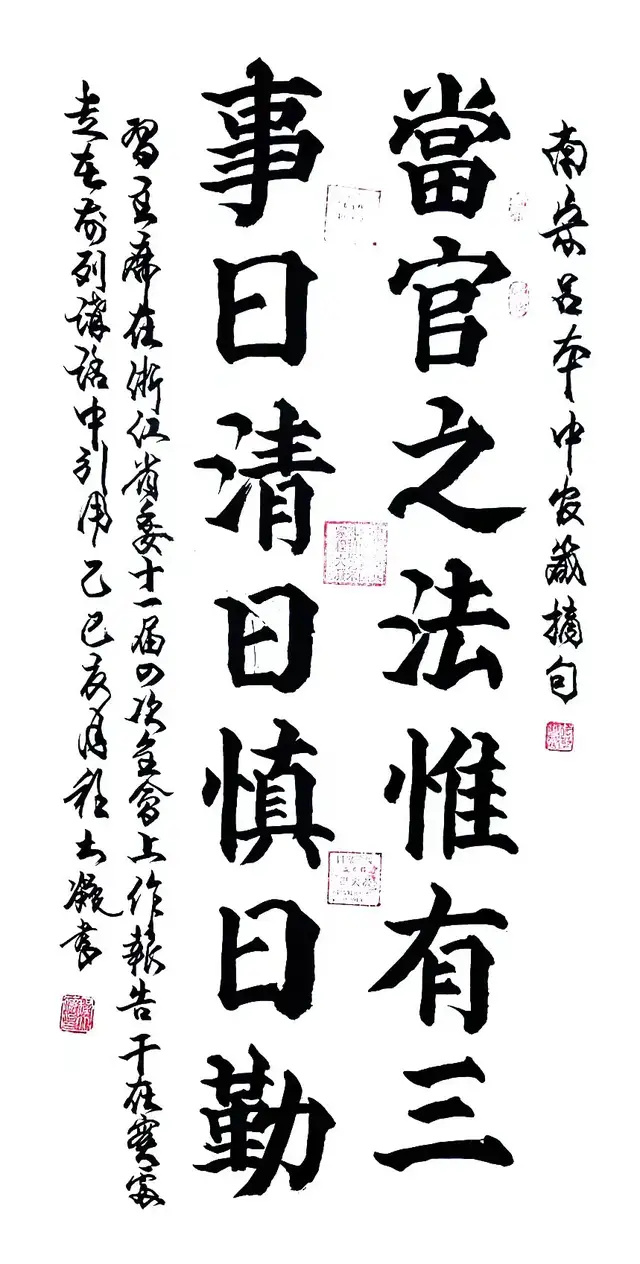 南宋吕本中官箴摘句
當官之法惟有三
事曰清曰慎曰勤
習主席在浙江省委十一届四次全會上作報告干在實處
走在前列講話中引用乙巳夏月程凝書